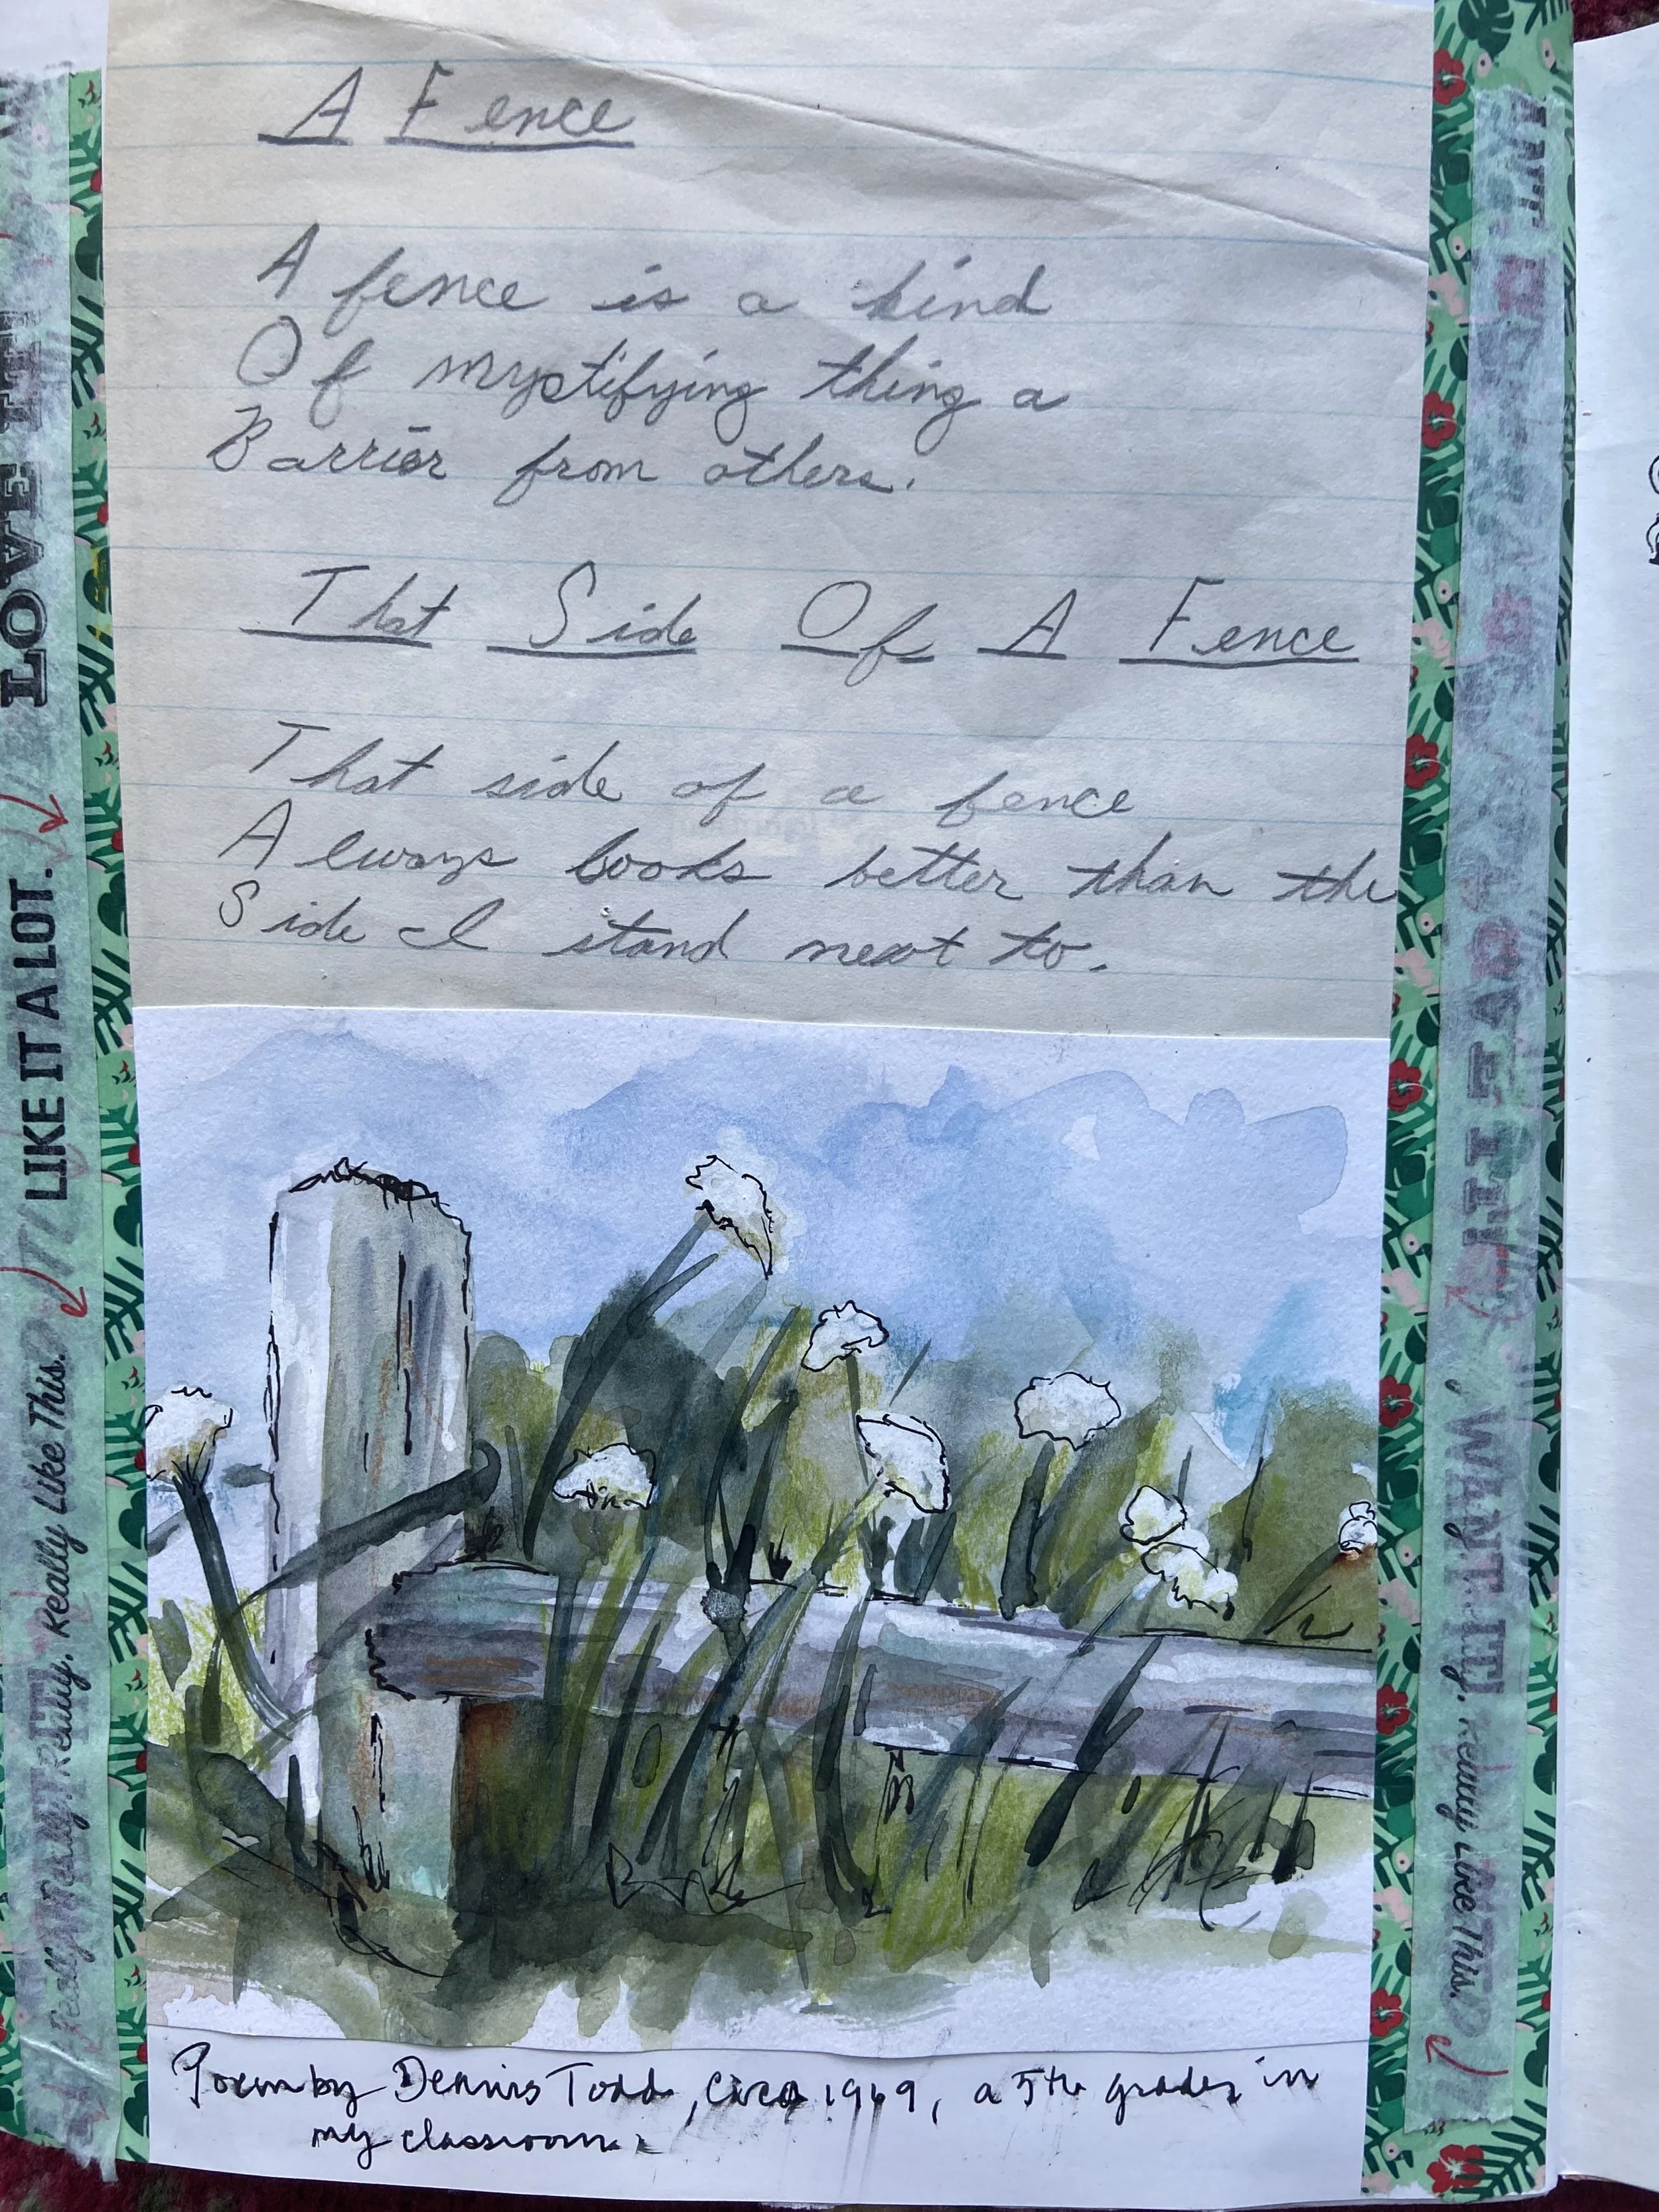 A Fence
A fence is a kind
Of mystifying thing a
Barrier from others.
That Side Of A Fence
That side of a fence
Always looks better than the
Side I stand next to.
Poem by Dennis Todd, circa 1969, a 5th grader in
my classroom.
LOVE IT
LIKE IT A LOT.
Really. Really Like This.
WANT IT!
Really Like This.